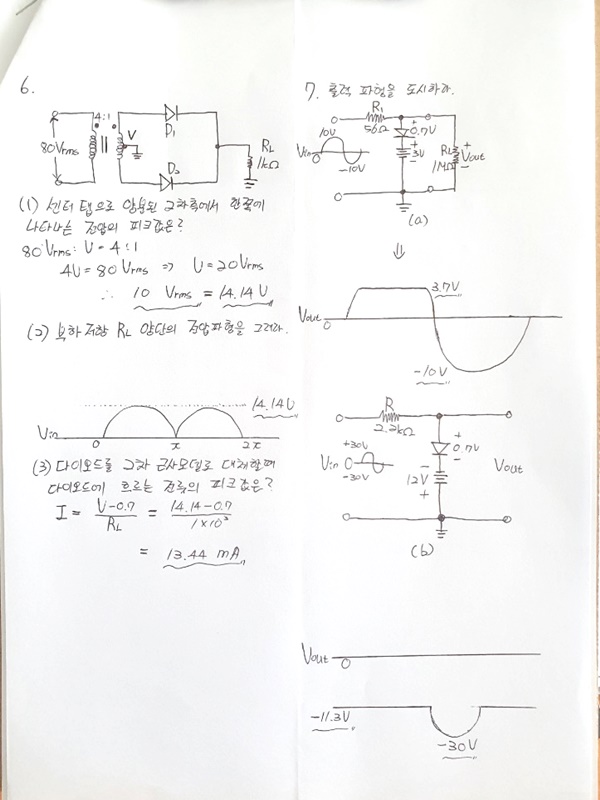 6.
4:1
D₁
80Vrms
V
D₂
RL
1kΩ
(1) 센터 탭으로 양분된 2차측에서 한쪽에
나타나는 전압의 피크값은?
80 Vrms : V = 4 : 1
4V = 80 Vrms ⇒ V = 20Vrms
∴ 10 Vrms = 14.14 V
(2) 부하 저항 RL 양단의 전압파형을 그려라.
14.14V
Vin
0 π 2π
(3) 다이오드를 2차 근사모델로 대체할때
다이오드에 흐르는 전류의 피크값은?
I = V-0.7 / RL = 14.14-0.7 / 1×10³
= 13.44 mA
7. 출력 파형을 도시하라.
R₁
56Ω
10V
Vin
-10V
+
0.7V
-
+
3V
-
RL
1MΩ
+
Vout
-
(a)
⇓
3.7V
Vout
0
-10V
R
2.2kΩ
+30V
Vin 0
-30V
+
0.7V
-
-
12V
+
Vout
(b)
Vout
0
-11.3V
-30V